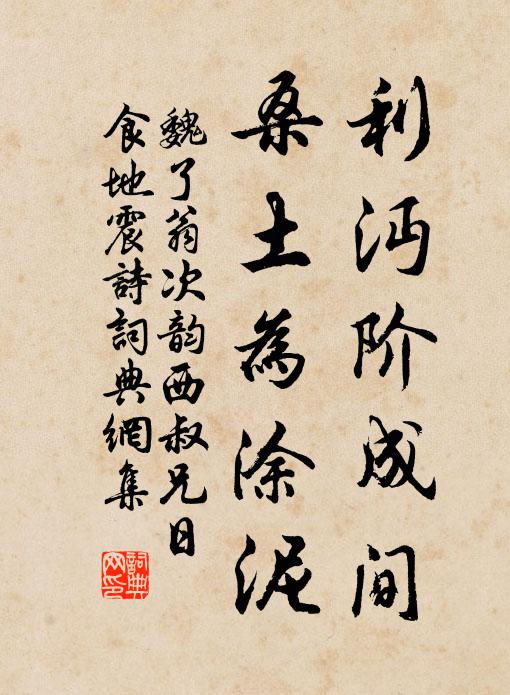 利沔阶成间
桑土為涂泥
魏了翁次韵西叔兄日
食地震詩詞典網集
詞典
网印